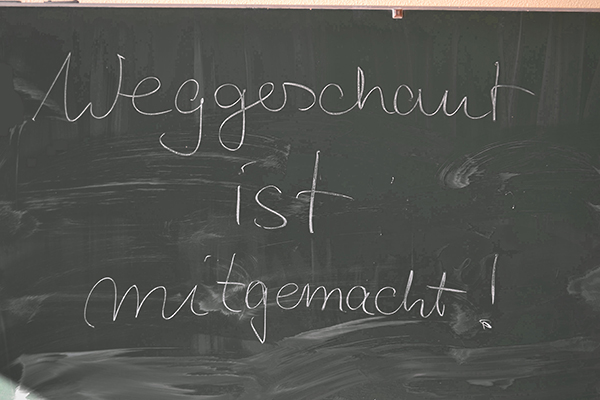 Weggeschaut
ist
mitgemacht!